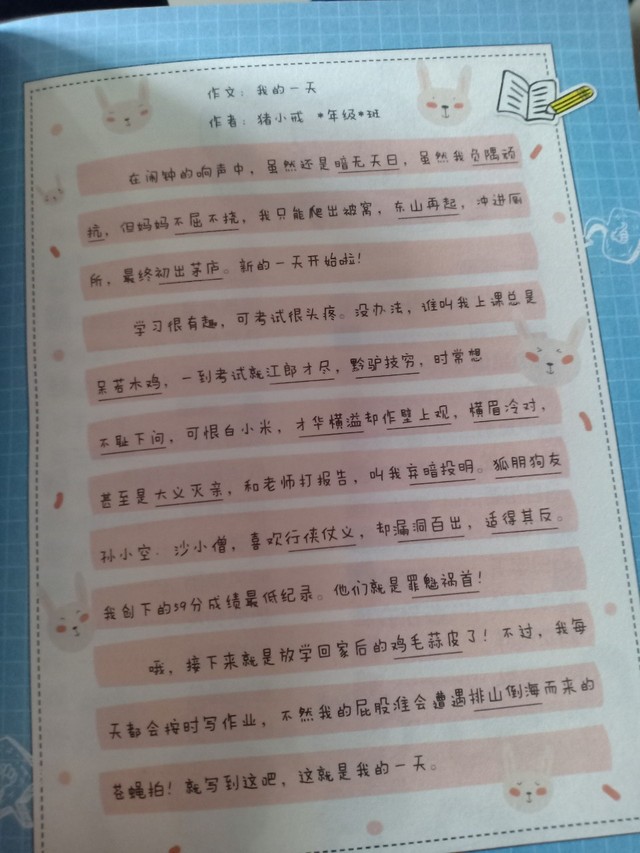 作文：我的一天
作者：猪小戒 *年级*班
在闹钟的响声中，虽然还是暗无天日，虽然我负隅顽
抗，但妈妈不屈不挠，我只能爬出被窝，东山再起，冲进厕
所，最终初出茅庐。新的一天开始啦！
学习很有趣，可考试很头疼。没办法，谁叫我上课总是
呆若木鸡，一到考试就江郎才尽，黔驴技穷，时常想
不耻下问，可恨白小米，才华横溢却作壁上观，横眉冷对，
甚至是大义灭亲，和老师打报告，叫我弃暗投明。狐朋狗友
孙小空、沙小僧，喜欢行侠仗义，却漏洞百出，适得其反。
我创下的59分成绩最低纪录。他们就是罪魁祸首！
哦，接下来就是放学回家后的鸡毛蒜皮了！不过，我每
天都会按时写作业，不然我的屁股准会遭遇排山倒海而来的
苍蝇拍！就写到这吧，这就是我的一天。